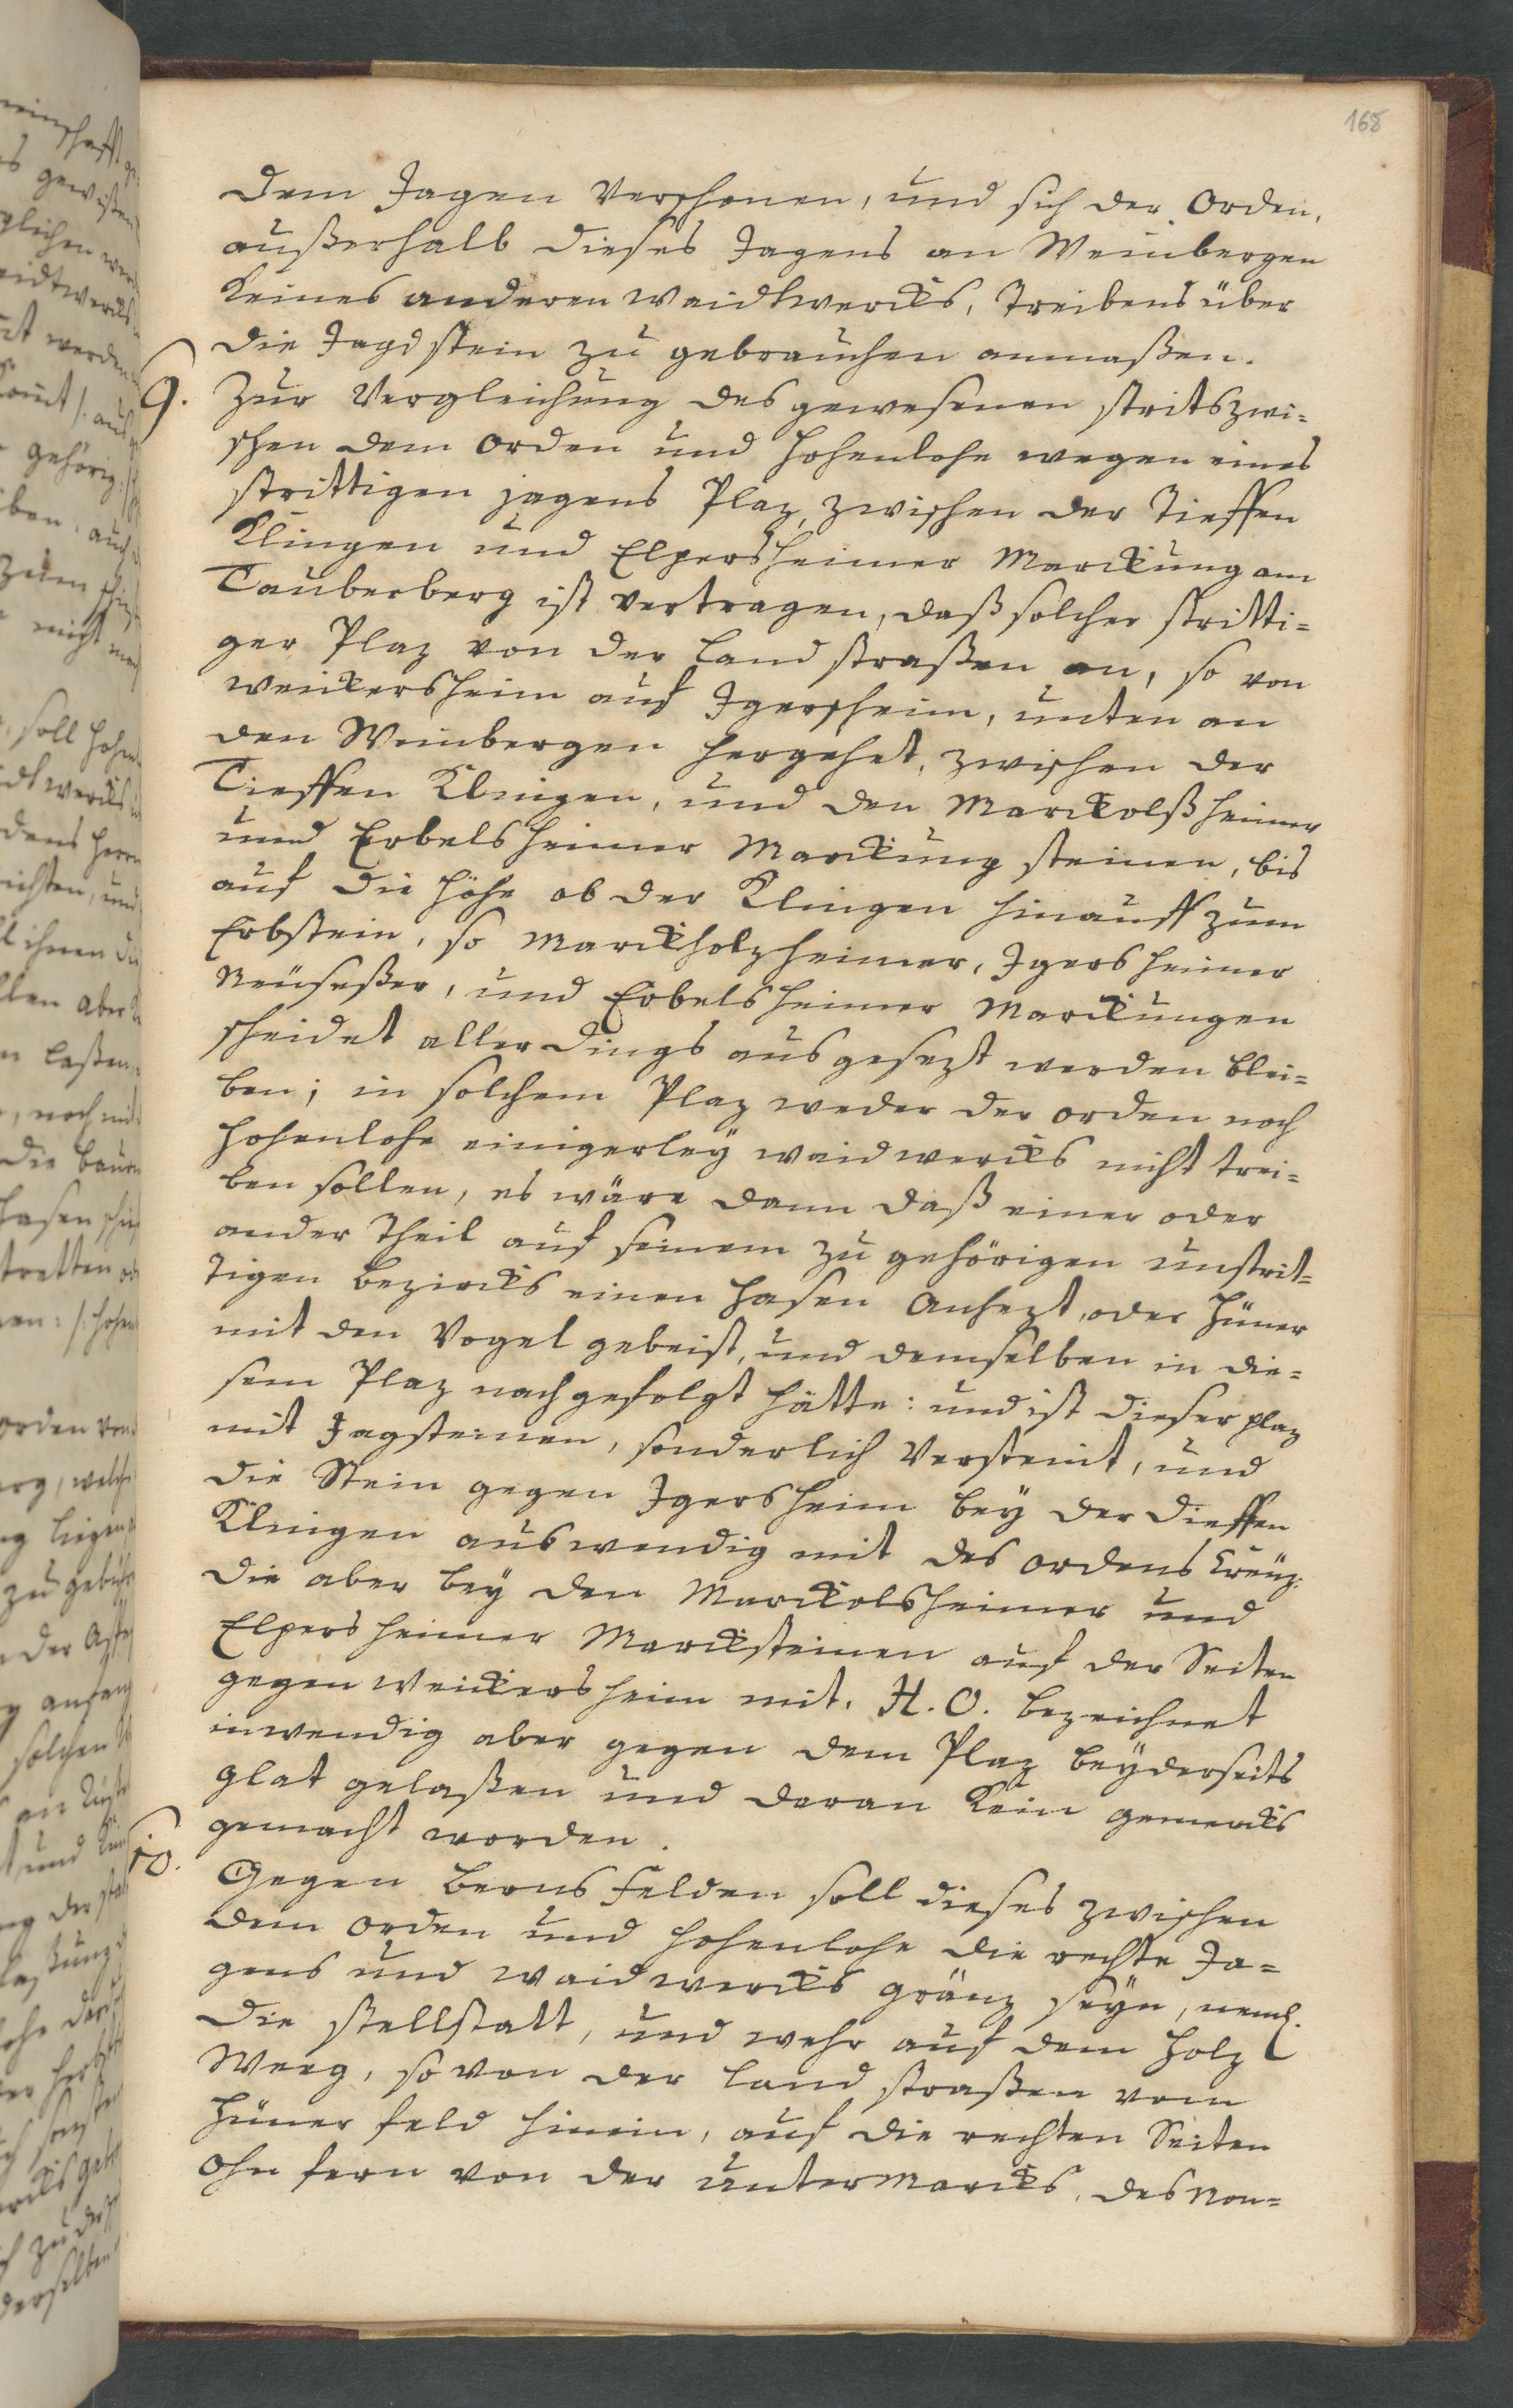 168
dem Jagen verschonen, und sich der Orden,
außerhalb dieses Jagens an Weinbergen
keines anderen waidtwercks, treibens über
die Jagdstein zu gebrauchen anmaßen.
9. Zur Vergleichung des gewesenen strits zwi=
schen dem Orden und Hohenlohe wegen eines
strittigen jagens Plaz, zwischen der Tieffen
Klingen und Elpersheimer Marckung am
Tauberberg ist vertragen, daß solcher stritti=
ger Plaz von der Landstraßen an, so von
weickersheim auf Igersheim, unten an
den Weinbergen hergehet, zwischen der
Tieffen Klingen, und den Marckolßheimer
und Erbelsheimer Marckung steinen, bis
auf die Höhe ob der Klingen hinauff zum
Erbstein, so Marckholzheimer, Igersheimer
Neuseßer, und Erbelsheimer Marckungen
scheidet allerdings ausgesezt werden blei=
ben; in solchem Plaz weder der orden noch
Hohenlohe einigerley waidwercks nicht trei=
ben sollen, es wäre dann daß einer oder
ander Theil auf seinem zu gehörigen unstrit=
tigen Bezircks einen Hasen anhezt, oder Hüner
mit den Vogel gebeist, und demselben in die=
sem Plaz nachgefolgt hätte: und ist dieser plaz
mit Jagsteinen, sonderlich versteint, und
die Stein gegen Igersheim bey der Dieffen
Klingen auswendig mit des ordens Creuz:
die aber bey den Marckolsheimer und
Elpersheimer Marcksteinen auf der Seiten
gegen Weickersheim mit. H. O. bezeichnet
inwendig aber gegen dem Plaz beyderseits
glat gelaßen und daran kein gemercks
gemacht worden.
10. Gegen Bernsfelden soll dieses zwischen
dem Orden und Hohenlohe die rechte Ja=
gens und waidwercks gränz seyn, neml.
die stellstatt, und wehr auf dem Holz
Weeg, so von der Landstraßen vom
Hüner feld hinein, auf die rechten Seiten
ohn fern von der unter Marcks, des Non=